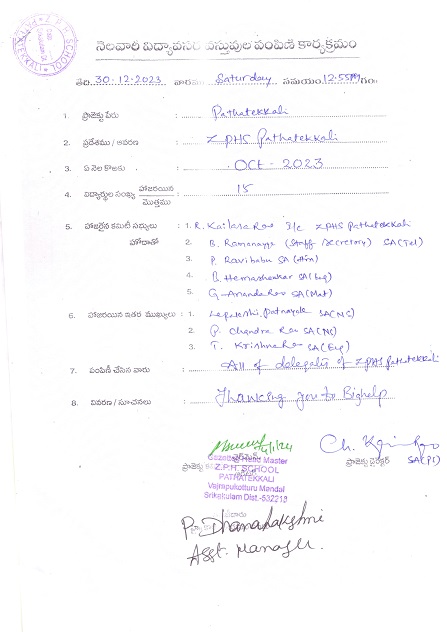 Z.P.H. SCHOOL PATHATEKKALI
నెలవారీ విద్యావసర వస్తువుల పంపిణీ కార్యక్రమం
తేది. 30-12-2023 వారము Saturday సమయం 12:55PM గం.
1. ప్రాజెక్టు పేరు Pathatekkali
2. ప్రదేశము / ఆవరణ ZPHS Pathatekkali
3. ఏ నెల కొఱకు OCT - 2023
4. విద్యార్థుల సంఖ్య హాజరయిన మొత్తము 15
5. హాజరైన కమిటీ సభ్యులు 1. R. Kailasa Rao I/c ZPHS Pathatekkali
హోదాతో 2. B. Ramanayya (Staff Secretary) SA(Tel)
3. P. Ravibabu SA (Hin)
4. B. Hemashankar SA (Eng)
5. G. Ananda Rao SA (Mat)
6. హాజరయిన ఇతర ముఖ్యులు : 1. Lepakshi patnayak SA(NS)
2. P. Chandra Rao SA(NS)
3. T. Krishna Rao SA(Eng)
7. పంపిణీ చేసిన వారు : All of delegates of ZPHS Pathatekkali
8. వివరణ / సూచనలు : Thanking you to Bighelp
Gazetted Head Master
Z.P.H. SCHOOL
PATHATEKKALI
Vajrapukotturu Mandal
Srikakulam Dist.-532218
ప్రాజెక్టు డైరెక్టర్ SA(PS)
P. Dhanalakshmi
Asst. Manager.